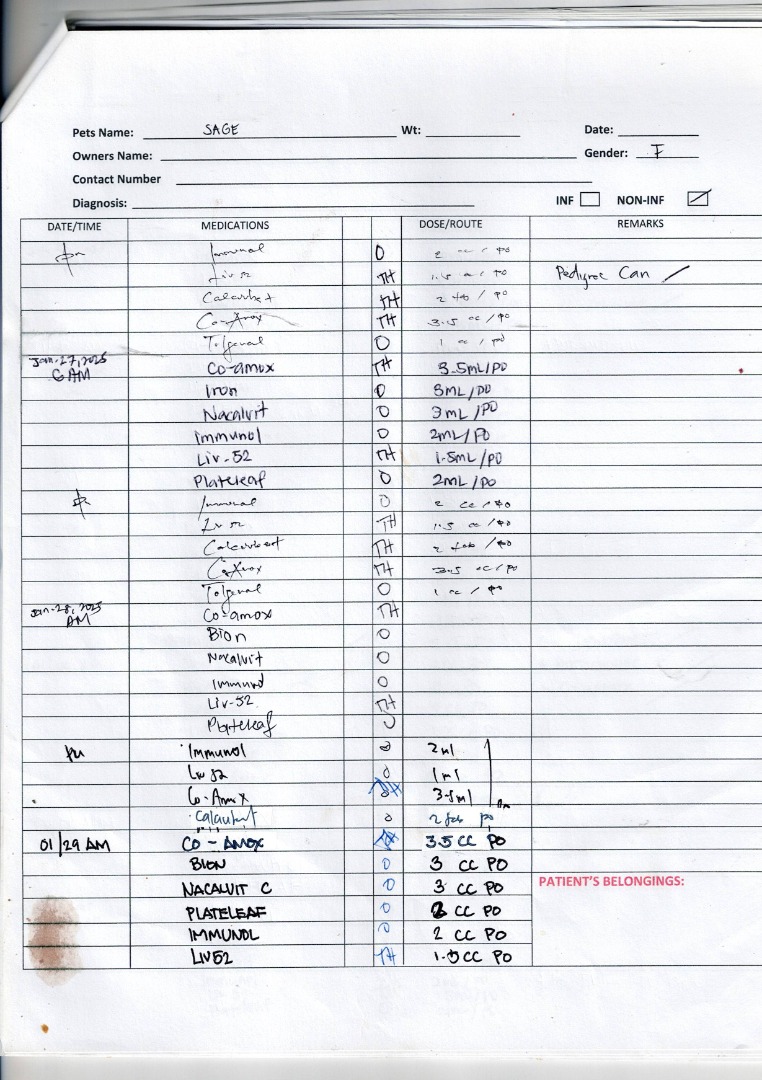 Pets Name: SAGE Wt: Date:
Owners Name: Gender: F
Contact Number
Diagnosis: INF NON-INF
DATE/TIME MEDICATIONS DOSE/ROUTE REMARKS
pm Immunol O 2 cc / po
Liv 52 TH 1.5 cc / po Pedigree Can /
TH 2 tab / po
Co-Amox TH 3.5 cc / po
O 1 cc / po
Jan-27, 2025 6 AM Co-amox TH 3.5mL/PO
Iron O 3mL/PO
Nacalvit O 3mL/PO
immunol O 2mL/PO
Liv-52 TH 1.5mL/PO
Plateleaf O 2mL/PO
Immunol O 2 cc / po
Liv 52 TH 1.5 cc / po
TH 2 tab / po
TH 3.5 cc / po
O 1 cc / po
Jan-28, 2025 AM Co-amox TH
Bion O
Nacalvit O
Immunol O
Liv-52 TH
Plateleaf O
Immunol O 2ml
Liv 52 O 1ml
Co-Amox 3.5ml
O 2 tab po
01/29 AM CO-AMOX 3.5 CC PO
BION O 3 CC PO
NACALVIT C O 3 CC PO
PATIENT'S BELONGINGS:
PLATELEAF O 2 CC PO
IMMUNOL O 2 CC PO
LIV52 TH 1.5CC PO